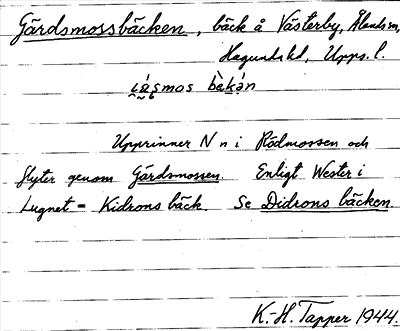 Gärdsmossbäcken, bäck å Västerby, Ålands sn,
Hagunda hd, Upps. l.
Upprinner N n i Rödmossen och
flyter genom Gärdsmossen. Enligt Wester i
Lugnet = Kidrons bäck. Se Didrons bäcken.
K.-H. Tapper 1944.